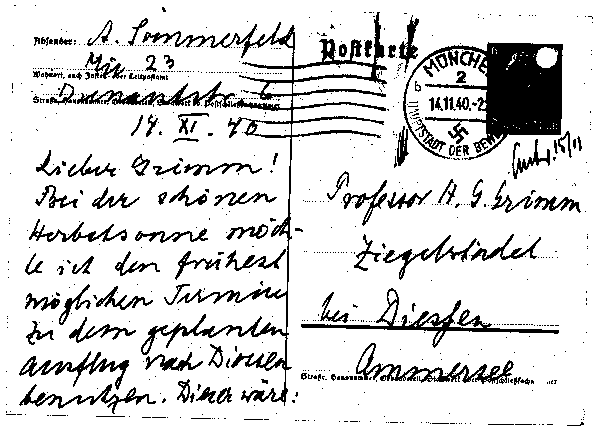 Absender: A. Sommerfeld
Mü 23
Wohnort, auch Zustell- oder Leitpostamt
Dunantstr. 6
Straße, Hausnummer,
14. XI. 40
Lieber Grimm!
Bei der schönen
Herbstsonne möch-
te ich den frühest
möglichen Termin
zu dem geplanten
Ausflug nach Diessen
benutzen. Dieser wäre:
Postkarte
MÜNCHEN
2
b
14.11.40.-2
HAUPTSTADT DER BEWE
Antw. 15/11
Professor H. G. Grimm
Ziegelstadel
bei Diessen
Ammersee
Straße, Hausnummer,